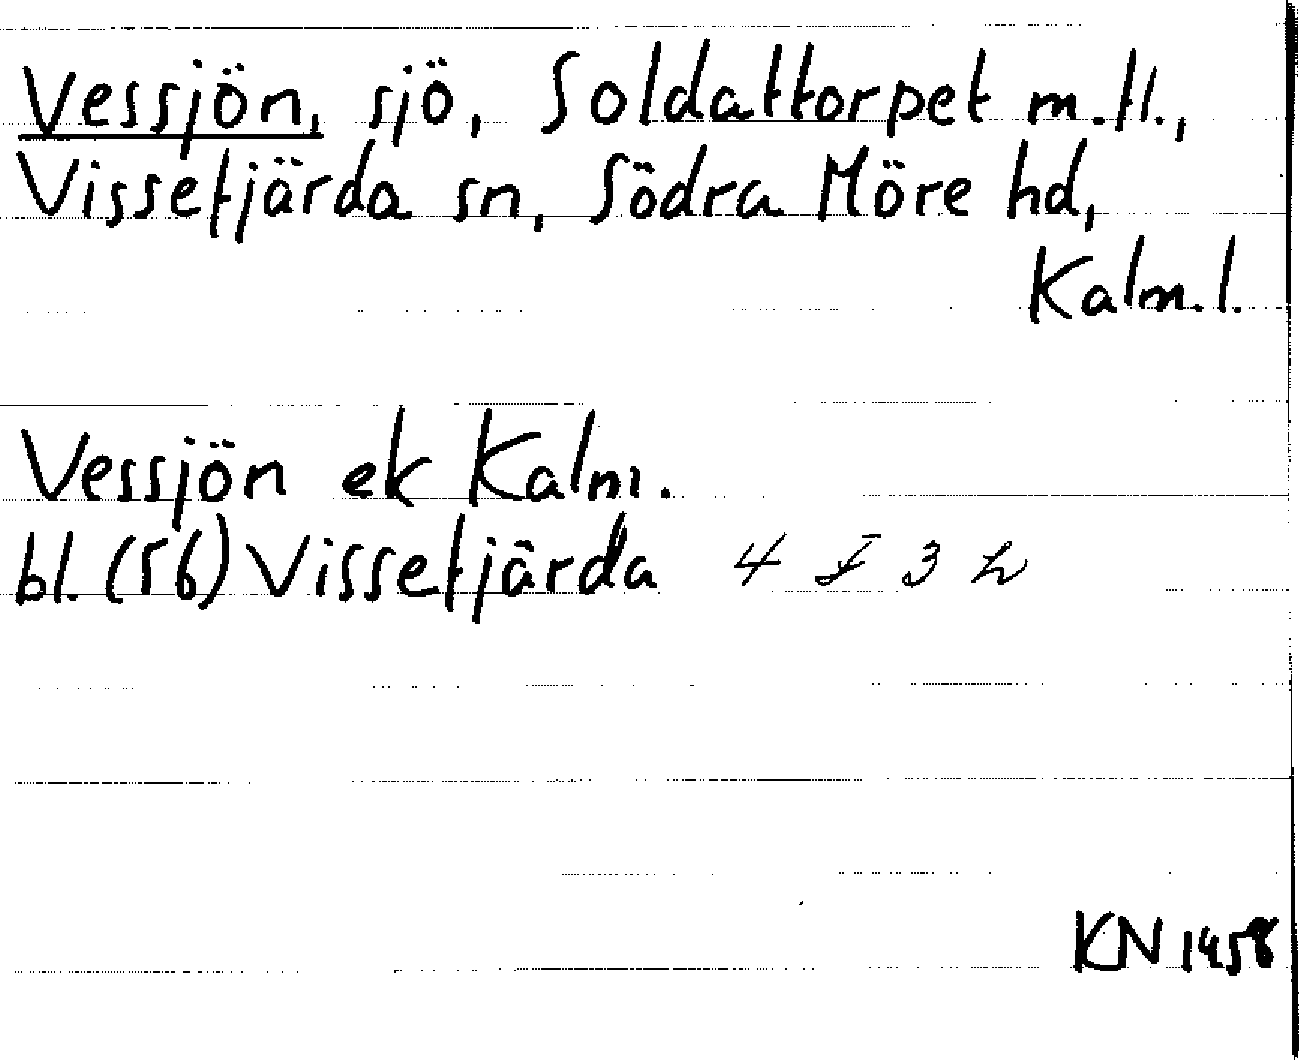 Vessjön, sjö, Soldattorpet m.fl.,
Vissefjärda sn, Södra Möre hd,
Kalm.l.
Vessjön ek Kalm.
bl. (56) Vissefjärda 4 I 3 h
KN 1958